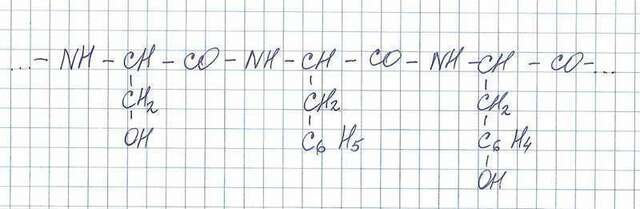 ...– NH – CH – CO – NH – CH – CO – NH – CH – CO –...
CH₂ CH₂ CH₂
OH C₆H₅ C₆H₄
OH